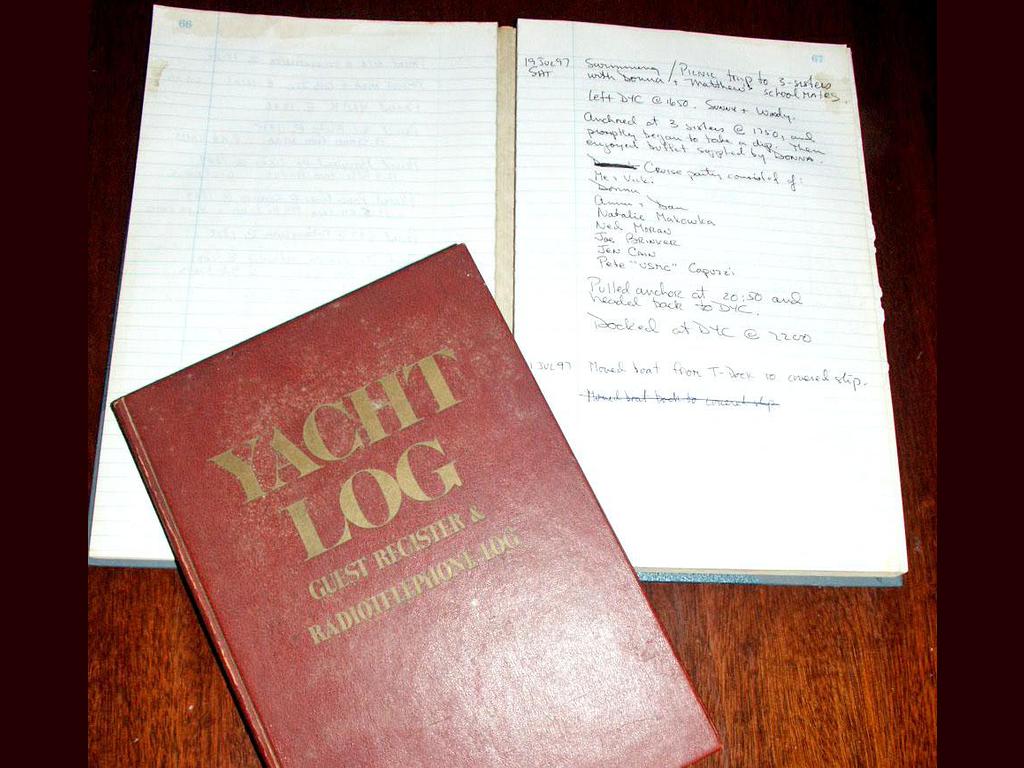 66
67
19 JUL 97
SAT
Swimming / Picnic trip to 3-sisters
with Donna + Matthew's school mates.
Left DYC @ 1650. Sunny + Windy.
Anchored at 3 sisters @ 1750, and
promptly began to take a dip. Then
enjoyed buffet supplied by DONNA.
Cruise party consisted of:
Me + Vick.
Donna
Anna + Dan
Natalie Makowka
Ned Moran
Joe Brinker
Jen Cain
Pete "USMC" Capuzzi
Pulled anchor at 20:50 and
headed back to DYC.
Docked at DYC @ 2200
JUL 97 Moved boat from T-Dock to covered slip.
Moved boat back to covered slip
YACHT
LOG
GUEST REGISTER &
RADIOTELEPHONE LOG